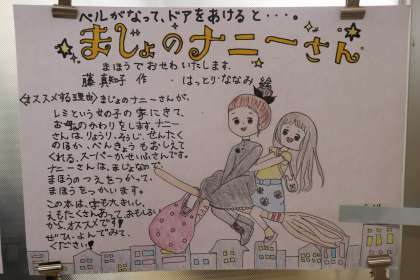 ベルがなって、ドアをあけると・・・。
まじょのナニーさん
まほうでおせわいたします。
藤 真知子 作 ・はっとり・ななみ 絵
〈オススメする理由〉まじょのナニーさんが、
レミという女の子の家にきて、
お母さんのかわりをします。ナニー
さんは、りょうり、そうじ、せんたく
のほか、べんきょうもおしえて
くれる、スーパーかせいふさんです。
ナニーさんは、まじょなので、
まほうのつえをつかって、
まほうをつかいます。
この本は、字も大きいし、
えもたくさんあって、おもしろい
から、オススメです!
ぜひ、よんでみて
ください!